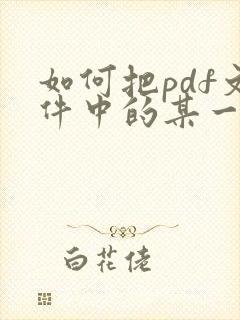 如何把pdf文
件中的某一
白花佬